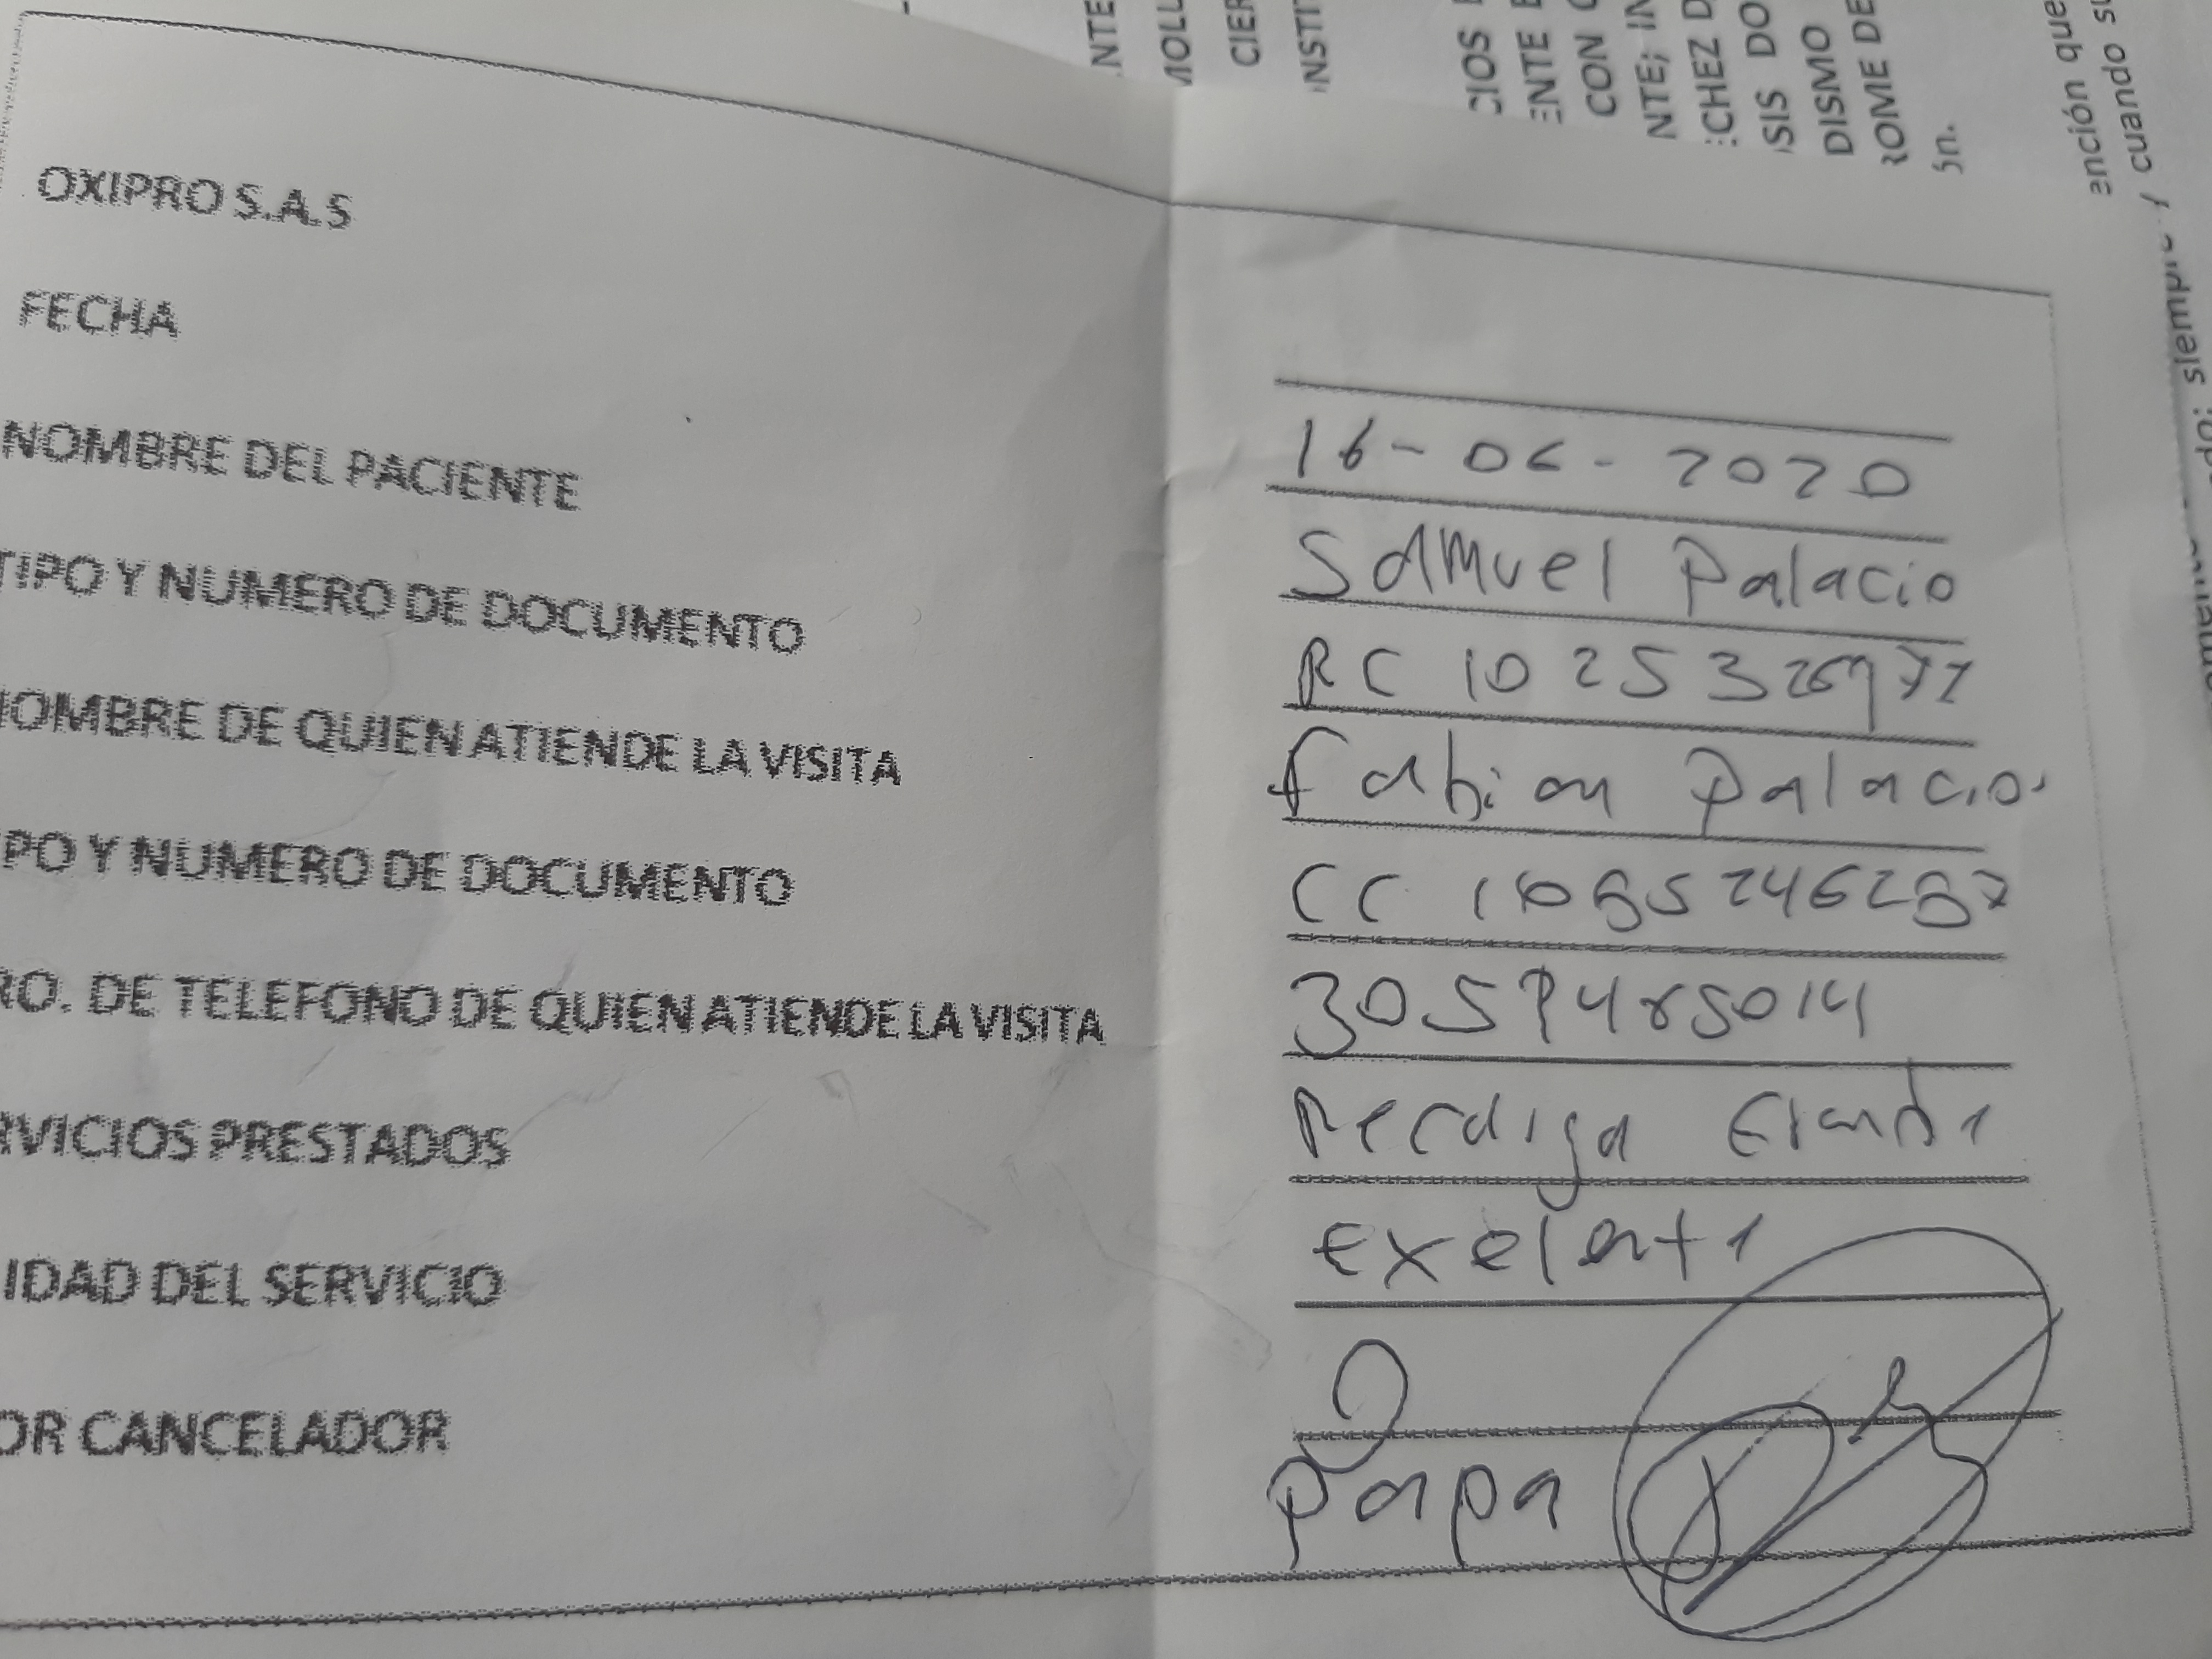 OXIPRO S.A.S
FECHA
16-06-2020
NOMBRE DEL PACIENTE
Samuel Palacio
TIPO Y NUMERO DE DOCUMENTO
RC
NOMBRE DE QUIEN ATIENDE LA VISITA
Fabian Palacio
PO Y NUMERO DE DOCUMENTO
CC
RO. DE TELEFONO DE QUIEN ATIENDE LA VISITA
RVICIOS PRESTADOS
IDAD DEL SERVICIO
Exelente
OR CANCELADOR
0
Papa
NTE
MOLU
CIER
NSTI
CIOS
ENTE
CON
NTE; IN
ECHEZ D
SIS DO
DISMO
ROME DE
ón.
ención que
y cuando su
do: siempre